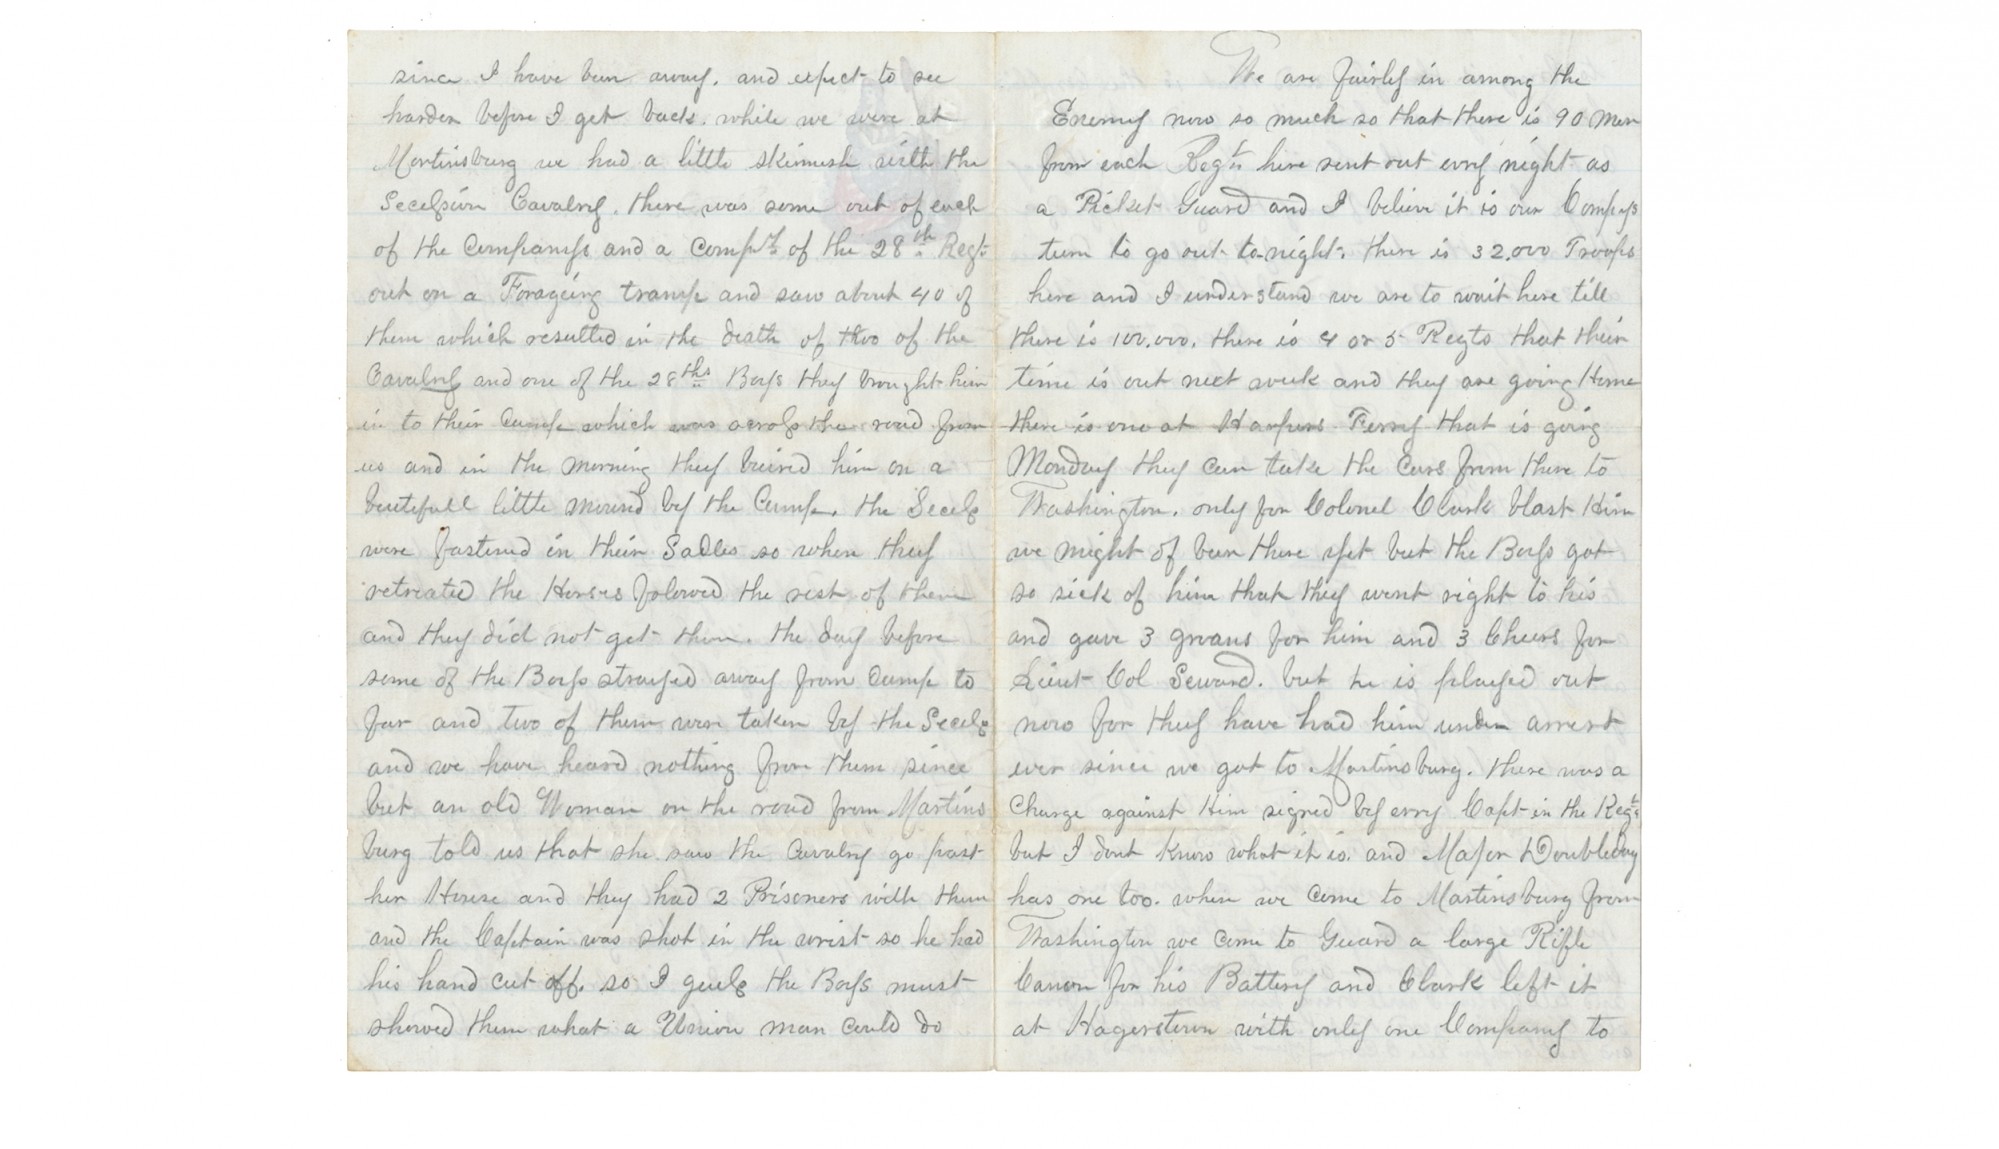 since I have been away. and expect to see
harder before I get back. while we were at
Martinsburg we had a little skirmish with the
Secession Cavalry. there was some out of each
of the Companys and a Compy of the 28th Regt
out on a Forageing tramp and saw about 40 of
them which resulted in the death of two of the
Cavalry and one of the 28ths Boys they brought him
in to their Camp which was across the road from
us and in the morning they buired him on a
beutefull little mound by the Camp. the Secess
were fastened in their Sadles so when they
retreated the Horses folowed the rest of them
and they did not get them. the day before
some of the Boys strayed away from Camp to
far and two of them were taken by the Secess
and we have heard nothing from them since
but an old Woman on the road from Martins
burg told us that she saw the Cavalry go past
her House and they had 2 Prisoners with them
and the Captain was shot in the wrist so he had
his hand cut off. so I guess the Boys must
showed them what a Union man could do
We are fairly in among the
Enemy now so much so that there is 90 Men
from each Regt here sent out evry night as
a Picket Guard and I believe it is our Companys
turn to go out to-night. there is 32,000 Troops
here and I understand we are to wait here till
there is 100,000. there is 4 or 5 Regts that their
time is out next week and they are going Home
there is one at Harpers Ferry that is going
Monday they can take the Cars from there to
Washington. only for Colonel Clark blast Him
we might of been there yet but the Boys got
so sick of him that they went right to his
and gave 3 groans for him and 3 Cheers for
Lieut Col Seward. but he is played out
now for they have had him under arrest
ever since we got to Martinsburg. there was a
Charge against Him signed by evry Capt in the Regt
but I dont Know what it is. and Major Doubleday
has one too. when we come to Martinsburg from
Washington we come to Guard a large Rifle
Canon for his Battery and Clark left it
at Hagerstown with only one Company to